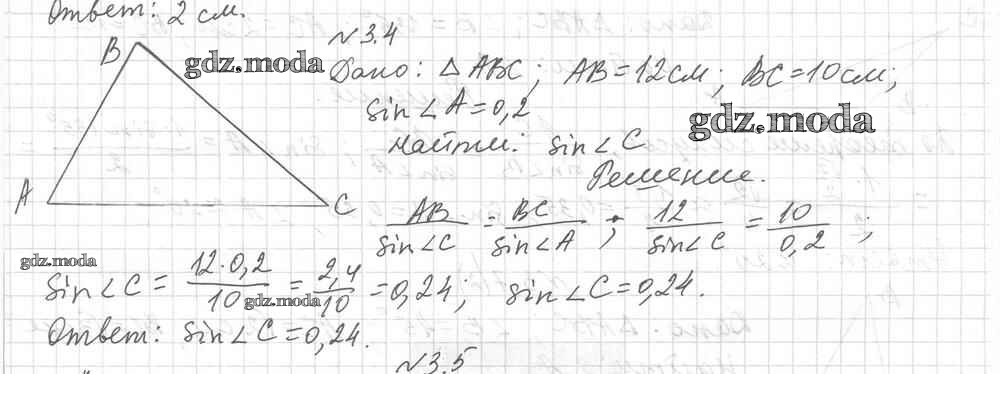 Ответ: 2 см.
№3.4
B
gdz.moda
Дано: △ABC; AB=12см; BC=10см;
sin∠A=0,2
gdz.moda
Найти: sin∠C
Решение.
A
C
AB/sin∠C = BC/sin∠A; 12/sin∠C = 10/0,2;
gdz.moda
sin∠C = 12·0,2/10 = 2,4/10 = 0,24; sin∠C=0,24.
gdz.moda
Ответ: sin∠C=0,24.
№3.5